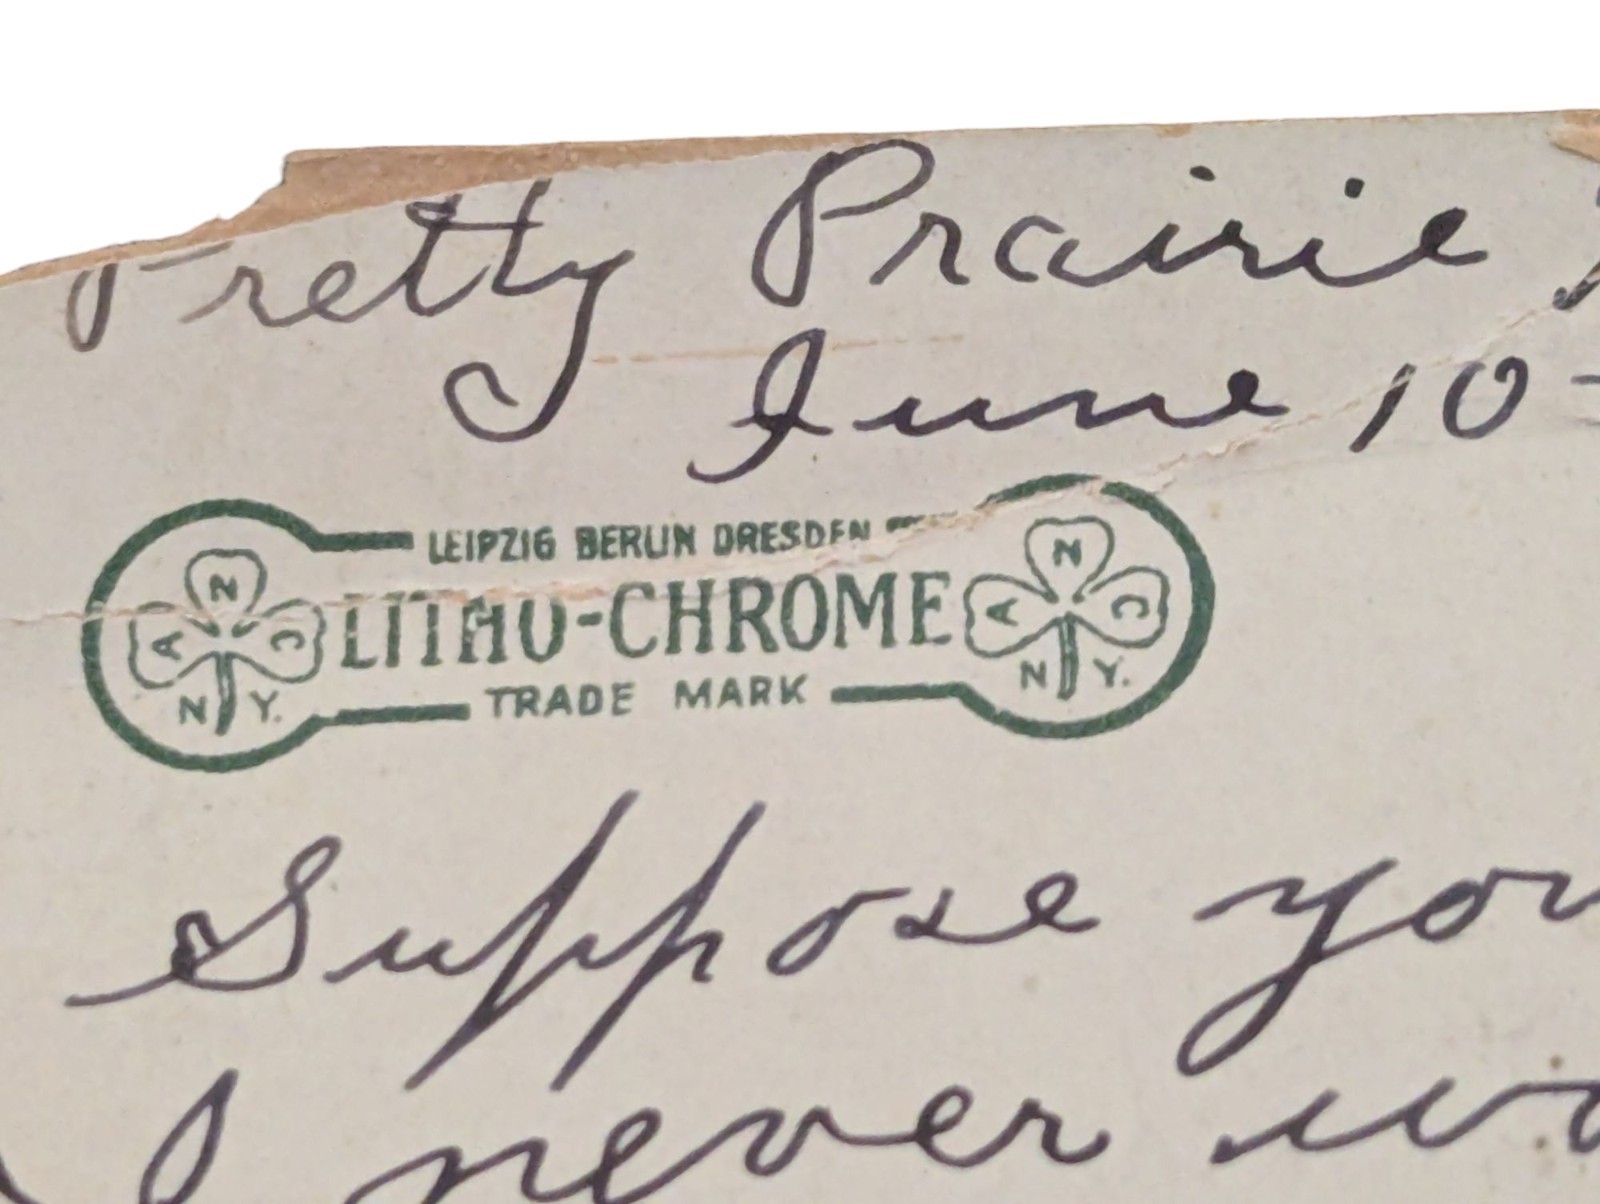 Pretty Prairie
June 10-
LEIPZIG BERLIN DRESDEN
N A C LITHO-CHROME N A C
N Y. TRADE MARK N Y.
Suppose you
I never